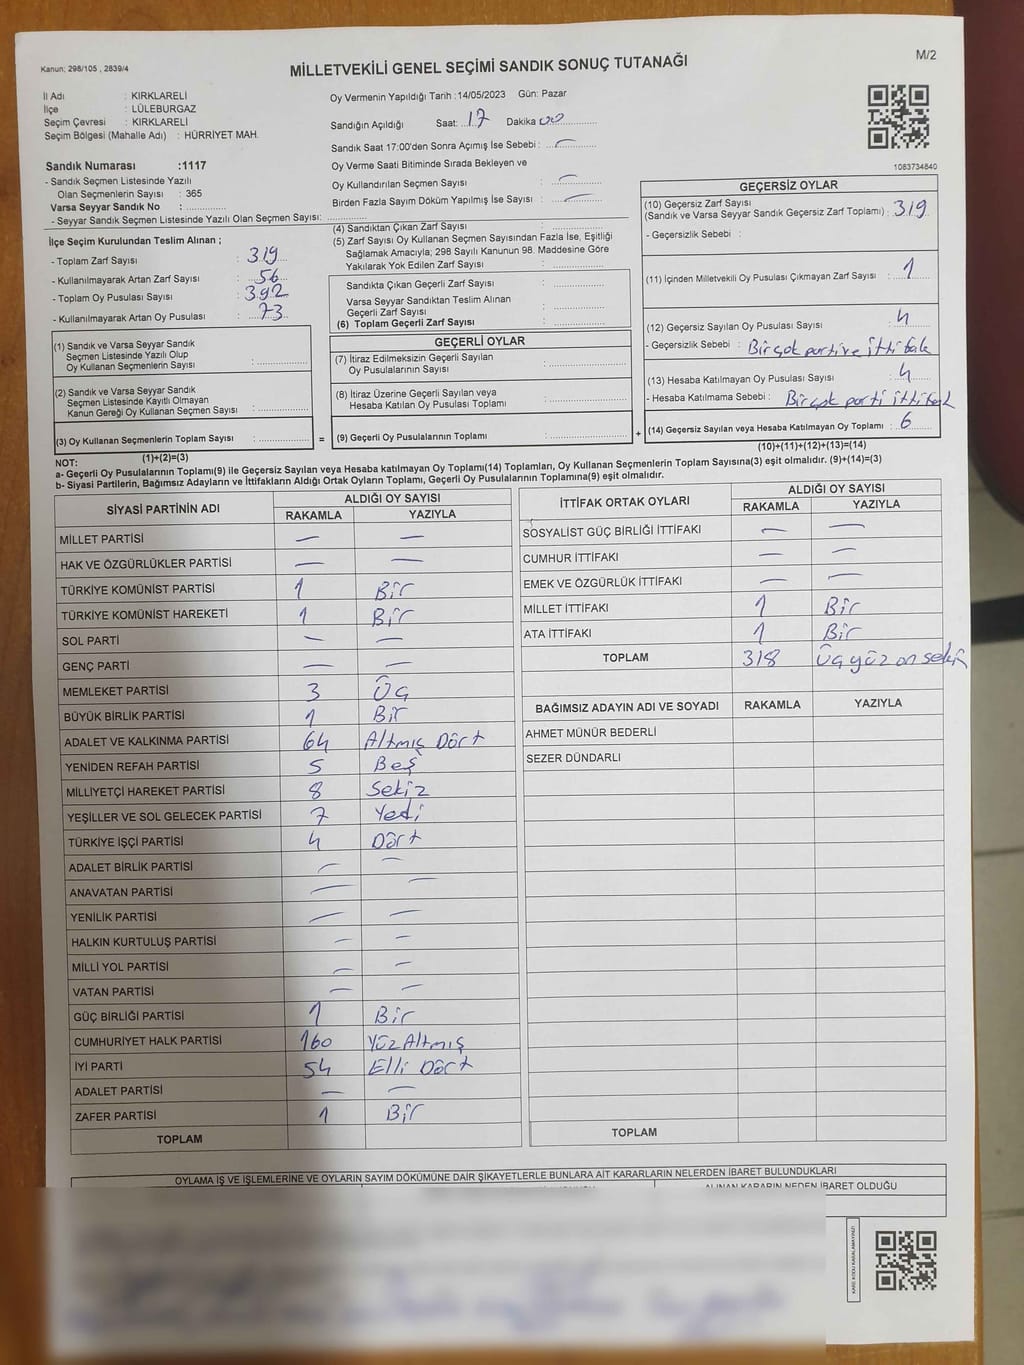 Kanun: 298/105 , 2839/4
MİLLETVEKİLİ GENEL SEÇİMİ SANDIK SONUÇ TUTANAĞI
M/2
İl Adı : KIRKLARELİ
İlçe : LÜLEBURGAZ
Seçim Çevresi : KIRKLARELİ
Seçim Bölgesi (Mahalle Adı) : HÜRRİYET MAH.
Sandık Numarası :1117
- Sandık Seçmen Listesinde Yazılı
Olan Seçmenlerin Sayısı : 365
Varsa Seyyar Sandık No :
- Seyyar Sandık Seçmen Listesinde Yazılı Olan Seçmen Sayısı:
Oy Vermenin Yapıldığı Tarih :14/05/2023 Gün: Pazar
Sandığın Açıldığı Saat: 17 Dakika 00
Sandık Saat 17:00'den Sonra Açılmış İse Sebebi : —
Oy Verme Saati Bitiminde Sırada Bekleyen ve
Oy Kullandırılan Seçmen Sayısı : —
Birden Fazla Sayım Döküm Yapılmış İse Sayısı : —
1083734840
İlçe Seçim Kurulundan Teslim Alınan ;
- Toplam Zarf Sayısı : 319
- Kullanılmayarak Artan Zarf Sayısı : 56
- Toplam Oy Pusulası Sayısı : 392
- Kullanılmayarak Artan Oy Pusulası : 73
(1) Sandık ve Varsa Seyyar Sandık
Seçmen Listesinde Yazılı Olup
Oy Kullanan Seçmenlerin Sayısı :
(2) Sandık ve Varsa Seyyar Sandık
Seçmen Listesinde Kayıtlı Olmayan
Kanun Gereği Oy Kullanan Seçmen Sayısı :
(3) Oy Kullanan Seçmenlerin Toplam Sayısı : =
(1)+(2)=(3)
(4) Sandıktan Çıkan Zarf Sayısı :
(5) Zarf Sayısı Oy Kullanan Seçmen Sayısından Fazla İse, Eşitliği
Sağlamak Amacıyla; 298 Sayılı Kanunun 98. Maddesine Göre
Yakılarak Yok Edilen Zarf Sayısı :
Sandıkta Çıkan Geçerli Zarf Sayısı :
Varsa Seyyar Sandıktan Teslim Alınan
Geçerli Zarf Sayısı :
(6) Toplam Geçerli Zarf Sayısı :
GEÇERLİ OYLAR
(7) İtiraz Edilmeksizin Geçerli Sayılan
Oy Pusulalarının Sayısı :
(8) İtiraz Üzerine Geçerli Sayılan veya
Hesaba Katılan Oy Pusulası Toplamı :
(9) Geçerli Oy Pusulalarının Toplamı : +
GEÇERSİZ OYLAR
(10) Geçersiz Zarf Sayısı
(Sandık ve Varsa Seyyar Sandık Geçersiz Zarf Toplamı) : 319
- Geçersizlik Sebebi :
(11) İçinden Milletvekili Oy Pusulası Çıkmayan Zarf Sayısı : 1
(12) Geçersiz Sayılan Oy Pusulası Sayısı : 4
- Geçersizlik Sebebi : Birçok parti ve ittifak
(13) Hesaba Katılmayan Oy Pusulası Sayısı : 4
- Hesaba Katılmama Sebebi : Birçok parti ittifak
(14) Geçersiz Sayılan veya Hesaba Katılmayan Oy Toplamı : 6
(10)+(11)+(12)+(13)=(14)
NOT:
a- Geçerli Oy Pusulalarının Toplamı(9) ile Geçersiz Sayılan veya Hesaba katılmayan Oy Toplamı(14) Toplamları, Oy Kullanan Seçmenlerin Toplam Sayısına(3) eşit olmalıdır. (9)+(14)=(3)
b- Siyasi Partilerin, Bağımsız Adayların ve İttifakların Aldığı Ortak Oyların Toplamı, Geçerli Oy Pusulalarının Toplamına(9) eşit olmalıdır.
SİYASİ PARTİNİN ADI ALDIĞI OY SAYISI
RAKAMLA YAZIYLA
MİLLET PARTİSİ — —
HAK VE ÖZGÜRLÜKLER PARTİSİ — —
TÜRKİYE KOMÜNİST PARTİSİ 1 Bir
TÜRKİYE KOMÜNİST HAREKETİ 1 Bir
SOL PARTİ — —
GENÇ PARTİ — —
MEMLEKET PARTİSİ 3 Üç
BÜYÜK BİRLİK PARTİSİ 1 Bir
ADALET VE KALKINMA PARTİSİ 64 Altmış Dört
YENİDEN REFAH PARTİSİ 5 Beş
MİLLİYETÇİ HAREKET PARTİSİ 8 Sekiz
YEŞİLLER VE SOL GELECEK PARTİSİ 7 Yedi
TÜRKİYE İŞÇİ PARTİSİ 4 Dört
ADALET BİRLİK PARTİSİ — —
ANAVATAN PARTİSİ — —
YENİLİK PARTİSİ — —
HALKIN KURTULUŞ PARTİSİ — —
MİLLİ YOL PARTİSİ — —
VATAN PARTİSİ — —
GÜÇ BİRLİĞİ PARTİSİ 1 Bir
CUMHURİYET HALK PARTİSİ 160 Yüz Altmış
İYİ PARTİ 54 Elli Dört
ADALET PARTİSİ — —
ZAFER PARTİSİ 1 Bir
TOPLAM
İTTİFAK ORTAK OYLARI ALDIĞI OY SAYISI
RAKAMLA YAZIYLA
SOSYALİST GÜÇ BİRLİĞİ İTTİFAKI — —
CUMHUR İTTİFAKI — —
EMEK VE ÖZGÜRLÜK İTTİFAKI — —
MİLLET İTTİFAKI 1 Bir
ATA İTTİFAKI 1 Bir
TOPLAM 318 Üç yüz on sekiz
BAĞIMSIZ ADAYIN ADI VE SOYADI RAKAMLA YAZIYLA
AHMET MÜNÜR BEDERLİ
SEZER DÜNDARLI
TOPLAM
OYLAMA İŞ VE İŞLEMLERİNE VE OYLARIN SAYIM DÖKÜMÜNE DAİR ŞİKAYETLERLE BUNLARA AİT KARARLARIN NELERDEN İBARET BULUNDUKLARI
ALINAN KARARIN NEDEN İBARET OLDUĞU